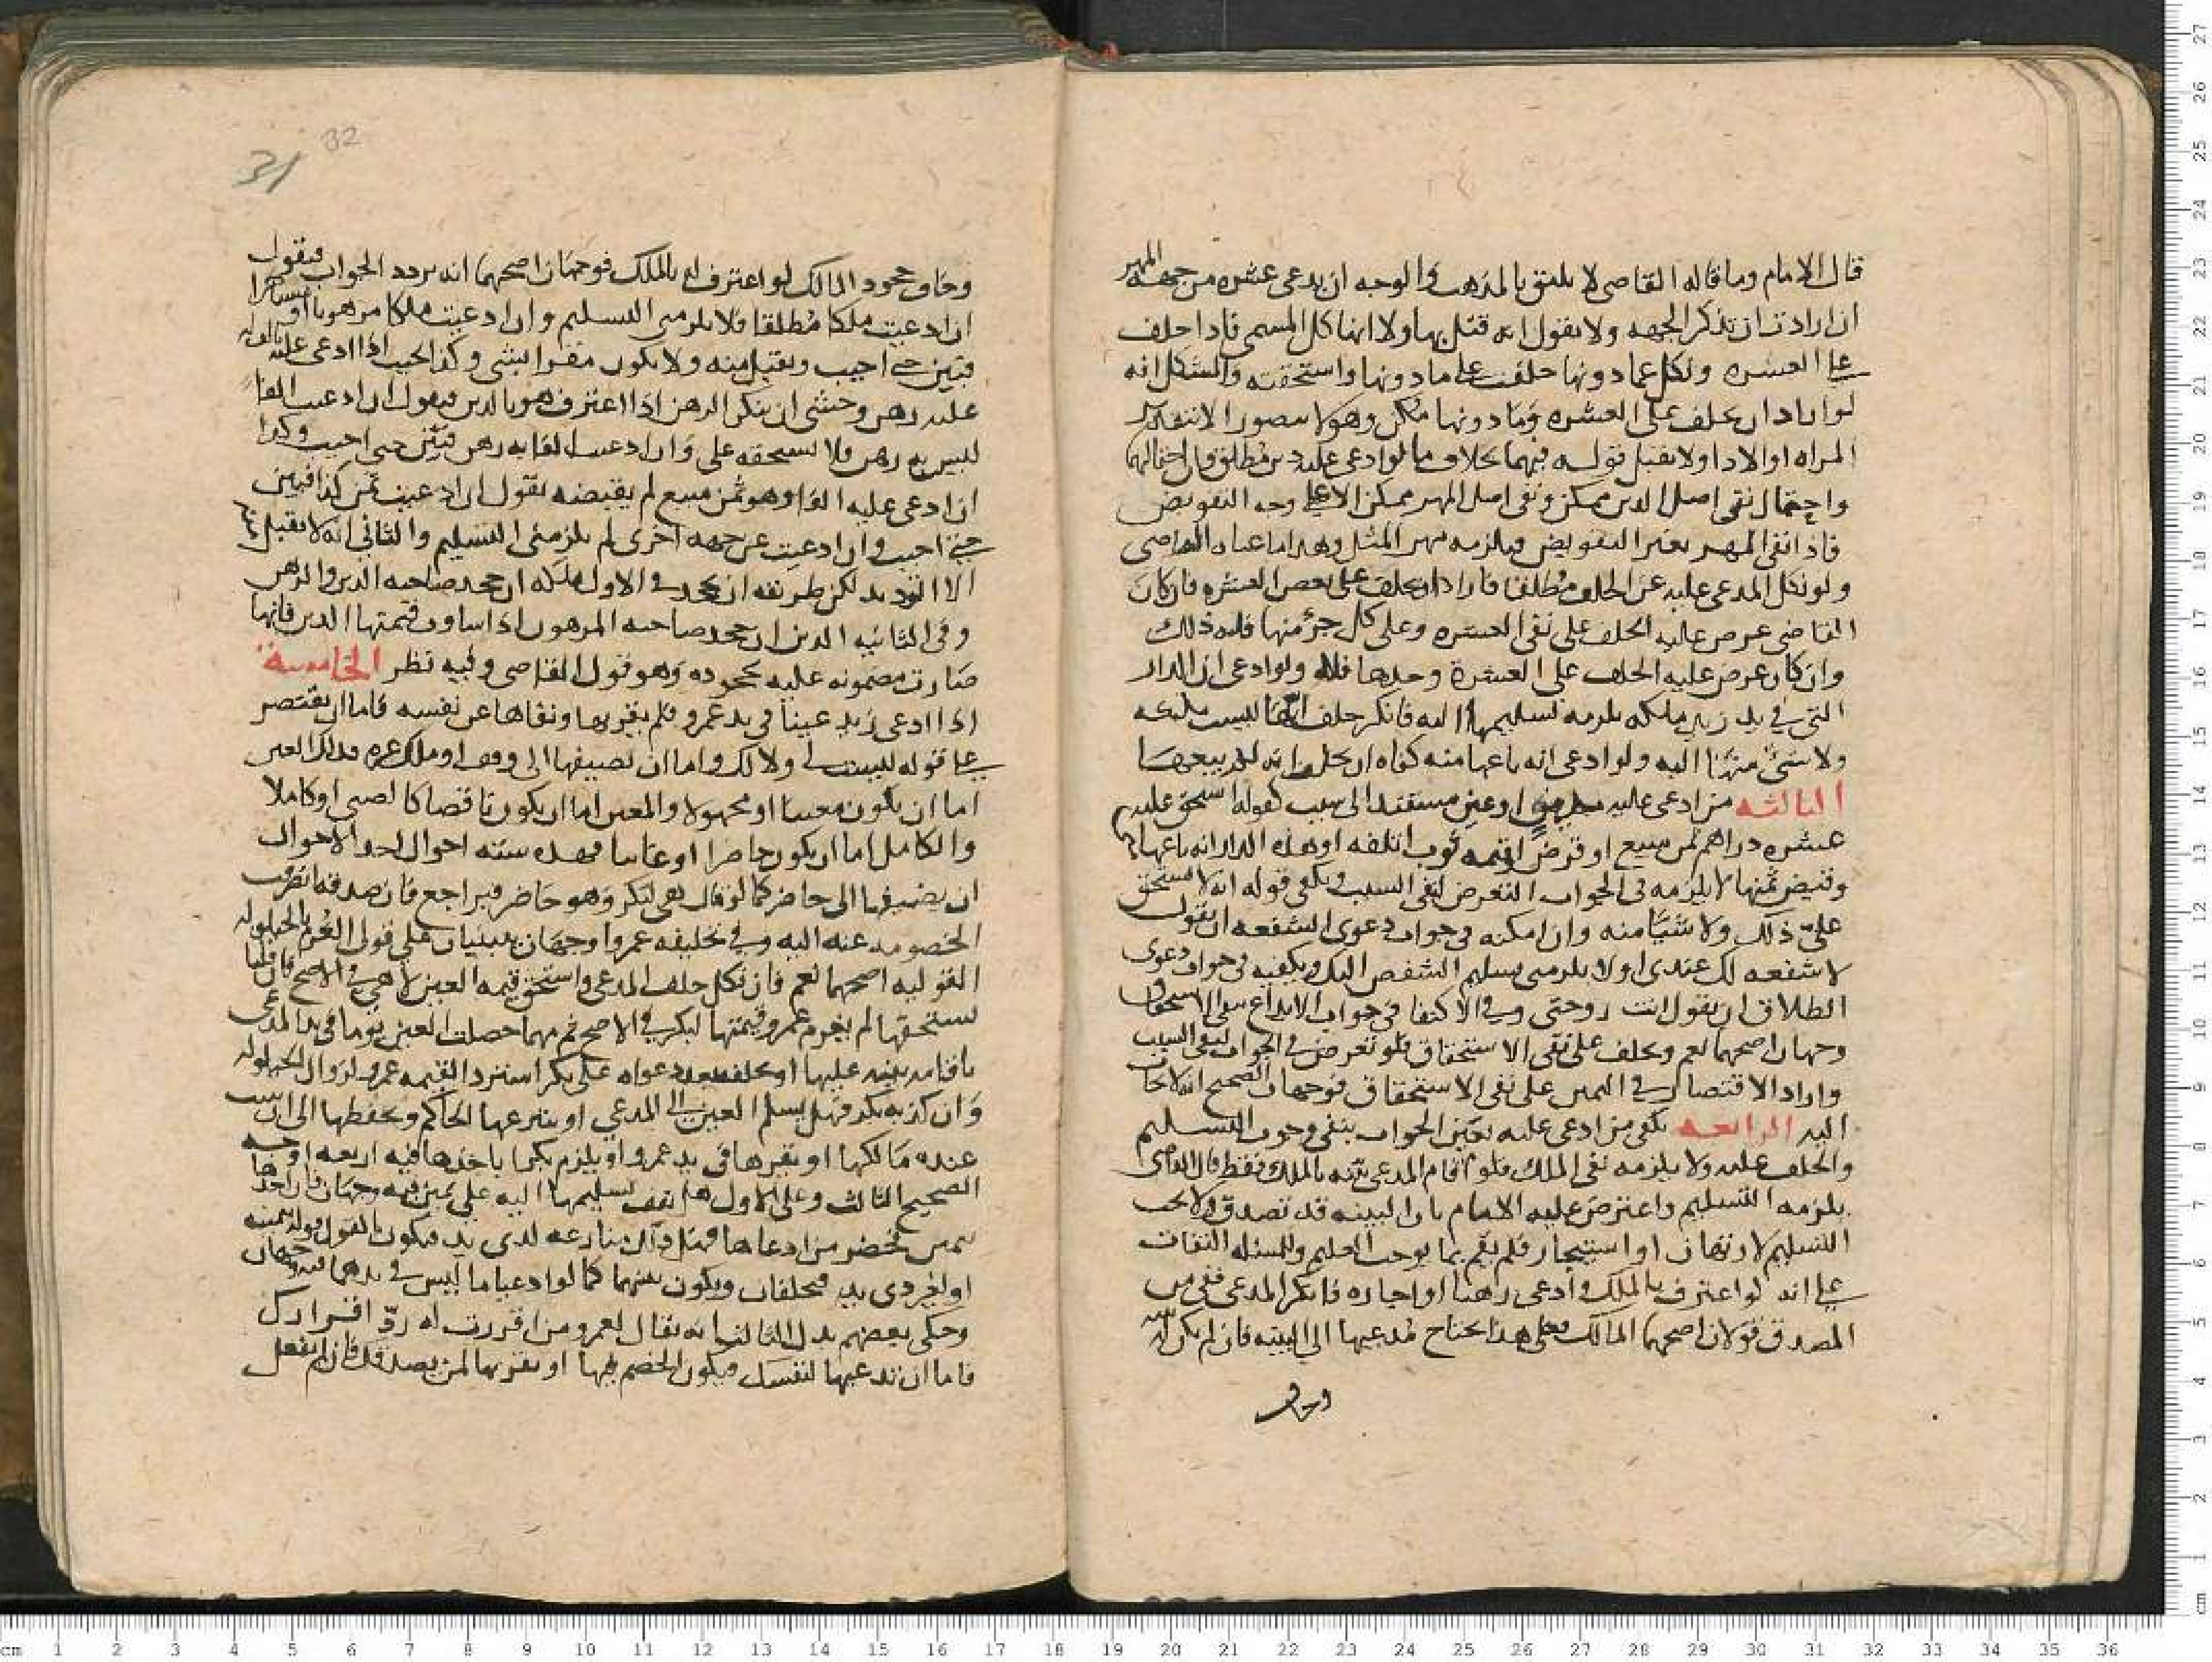 قال الامام وما قاله القاضى لا يليق بالمذهب والوجه ان يدعى عشره من جهه المهر
ان ارادت ان تذكر الجهه ولا يقول انه قتل بها ولا انها كل المسمى فاذا حلف
على العشره ونكل عما دونها حلفت على ما دونها واستحقته والشكل انه
لو اراد ان يحلف على العشره وما دونها مكن وهو لا يتصور الا بتقدير
المراه او الاداء ولا يقبل قوله فيهما بخلاف ما لو ادعى عليه دين مطلق فان احتمالهما
واحتمال نفى اصل الدين ممكن ونفى اصل المهر ممكن الا على وجه التفويض
فاذا نفى المهر تعين التفويض فيلزمه مهر المثل وهذا ما عناه القاضى
ولو نكل المدعى عليه عن الحلف مطلقا فاراد ان يحلف على بعض العشره فان كان
القاضى عرض عليه الحلف على نفى العشره وعلى كل جزء منها فله ذلك
وان كان عرض عليه الحلف على العشرة وحدها فلا ولو ادعى ان الدار
التى فى يد زيد ملكه يلزمه تسليمها اليه فانكر حلف انها ليست ملكه
ولا شئ منها اليه ولو ادعى انه باعها منه كفاه ان يحلف انه لم يبعها
الثالثه من ادعى عليه بدين او عين مستندا الى سبب كقوله استحق عليه
عشره دراهم ثمن مبيع او قرض او قيمه ثوب اتلفه او هذه الدار انه باعها
وقبض ثمنها لا يلزمه فى الجواب التعرض لنفى السبب ويكفى قوله انه لا يستحق
على ذلك ولا شيا منه وان امكنه فى جواب دعوى الشفعه ان يقول
لا شفعه لك عندى او لا يلزمنى تسليم الشقص اليك ويكفيه فى جواب دعوى
الطلاق ان يقول انت زوجتى وفى الاكتفا فى جواب الايداع بنفى الاستحقاق
وجهان اصحهما نعم ويحلف على نفى الاستحقاق فلو تعرض فى الجواب لنفى السبب
واراد الاقتصار فى اليمين على نفى الاستحقاق فوجهان الصحيح انه لا يجاب
اليه الرابعه يكفى من ادعى عليه بعين الجواب بنفى وجوب التسليم
والحلف عليه ولا يلزمه نفى الملك فلو اقام المدعى بينه بالملك فقط قال القاضى
يلزمه التسليم واعترض عليه الامام بان البينه قد تصدق ولا يجب
التسليم لارتهان او استيجار فلم يقم بما يوجب التسليم وللمسئله التفات
على انه لو اعترف بالملك وادعى رهنا او اجاره فانكر المدعى ففى من
المصدق قولان اصحهما المالك فعلى هذا يحتاج مدعيها الى البينه فان لم يكن له بينه
وخاف
31 32
وخاف جحود المالك لو اعترف له بالملك فوجهان اصحهما انه يردد الجواب فيقول
ان ادعيت ملكا مطلقا فلا يلزمنى التسليم وان ادعيت ملكا مرهونا او مستاجرا
فبين حتى اجيب ويقبل منه ولا يكون مقرا بشئ وكذا لحيث اذا ادعى عليه
عليه رهن وخشى ان ينكر الرهن اذا اعترف هو بالدين فيقول ان ادعيت الفا
ليس به رهن فلا تستحقه على وان ادعيت الفا به رهن فبين حتى اجيب وكذا
ان ادعى عليه الفا وهو ثمن مبيع لم يقبضه يقول ان ادعيت ثمن كذا فبين
حتى اجيب وان ادعيت عن جهه اخرى لم يلزمنى التسليم والثانى انه لا يقبل
الا التردد لكن طريقه ان يجحد فى الاول ملكه ان جحد صاحبه الدين والرهن
وفى الثانيه الدين ان جحد صاحبه المرهون اذا ساوت قيمتها الدين فانها
صارت مضمونه عليه بجحوده وهو قول القاضى وفيه نظر الخامسة
اذا ادعى زيد عينا فى يد عمرو فلم يقر بها ونفاها عن نفسه فاما ان يقتصر
على قوله ليست لى ولا لك واما ان يضيفها الى وقف او ملك غيره فذلك الغير
اما ان يكون معينا او مجهولا والمعين اما ان يكون ناقصا كالصبى او كاملا
والكامل اما ان يكون حاضرا او غايبا فهذه سته احوال احد الاحوال
ان يضيفها الى حاضر كما لو قال هى لبكر وهو حاضر فيراجع فان صدقه انصرفت
الخصومه عنه اليه وفى تحليفه عمروا وجهان يبنيان على قول الغرم بالحيلوله
القوليه اصحهما نعم فان نكل حلف المدعى واستحق قيمه العين لا هى فى الاصح فان قلنا
يستحقها لم يغرم عمرو قيمتها لبكر فى الاصح ثم مهما حصلت العين يوما فى يد المدعى
باقامه بينه عليها او بحلفه بعد دعواه على بكر استرد القيمه عمرو لزوال الحيلوله
وان كذبه بكر فهل يسلم العين الى المدعى او ينزعها الحاكم ويحفظها الى ان يثبت
عنده مالكها او يقرها فى يد عمرو او يلزم بكرا باخذها فيه اربعه اوجه
الصحيح الثالث وعلى الاول هل يقف تسليمها اليه على يمين فيه وجهان فان اخذها
بيمين فحضر من ادعاها فهل ينازعه لذى يد فيكون القول قوله بيمينه
او لغير ذى يد فيحلفان ويكون بينهما كما لو ادعيا ما ليس فى يدهما فيه وجهان
وحكى بعضهم بدل الثالث انه يقال لعمرو من اقررت له رد اقرارك
فاما ان تدعيها لنفسك فيكون الخصم فيها او تقر بها لمن يصدقك فان لم تفعل